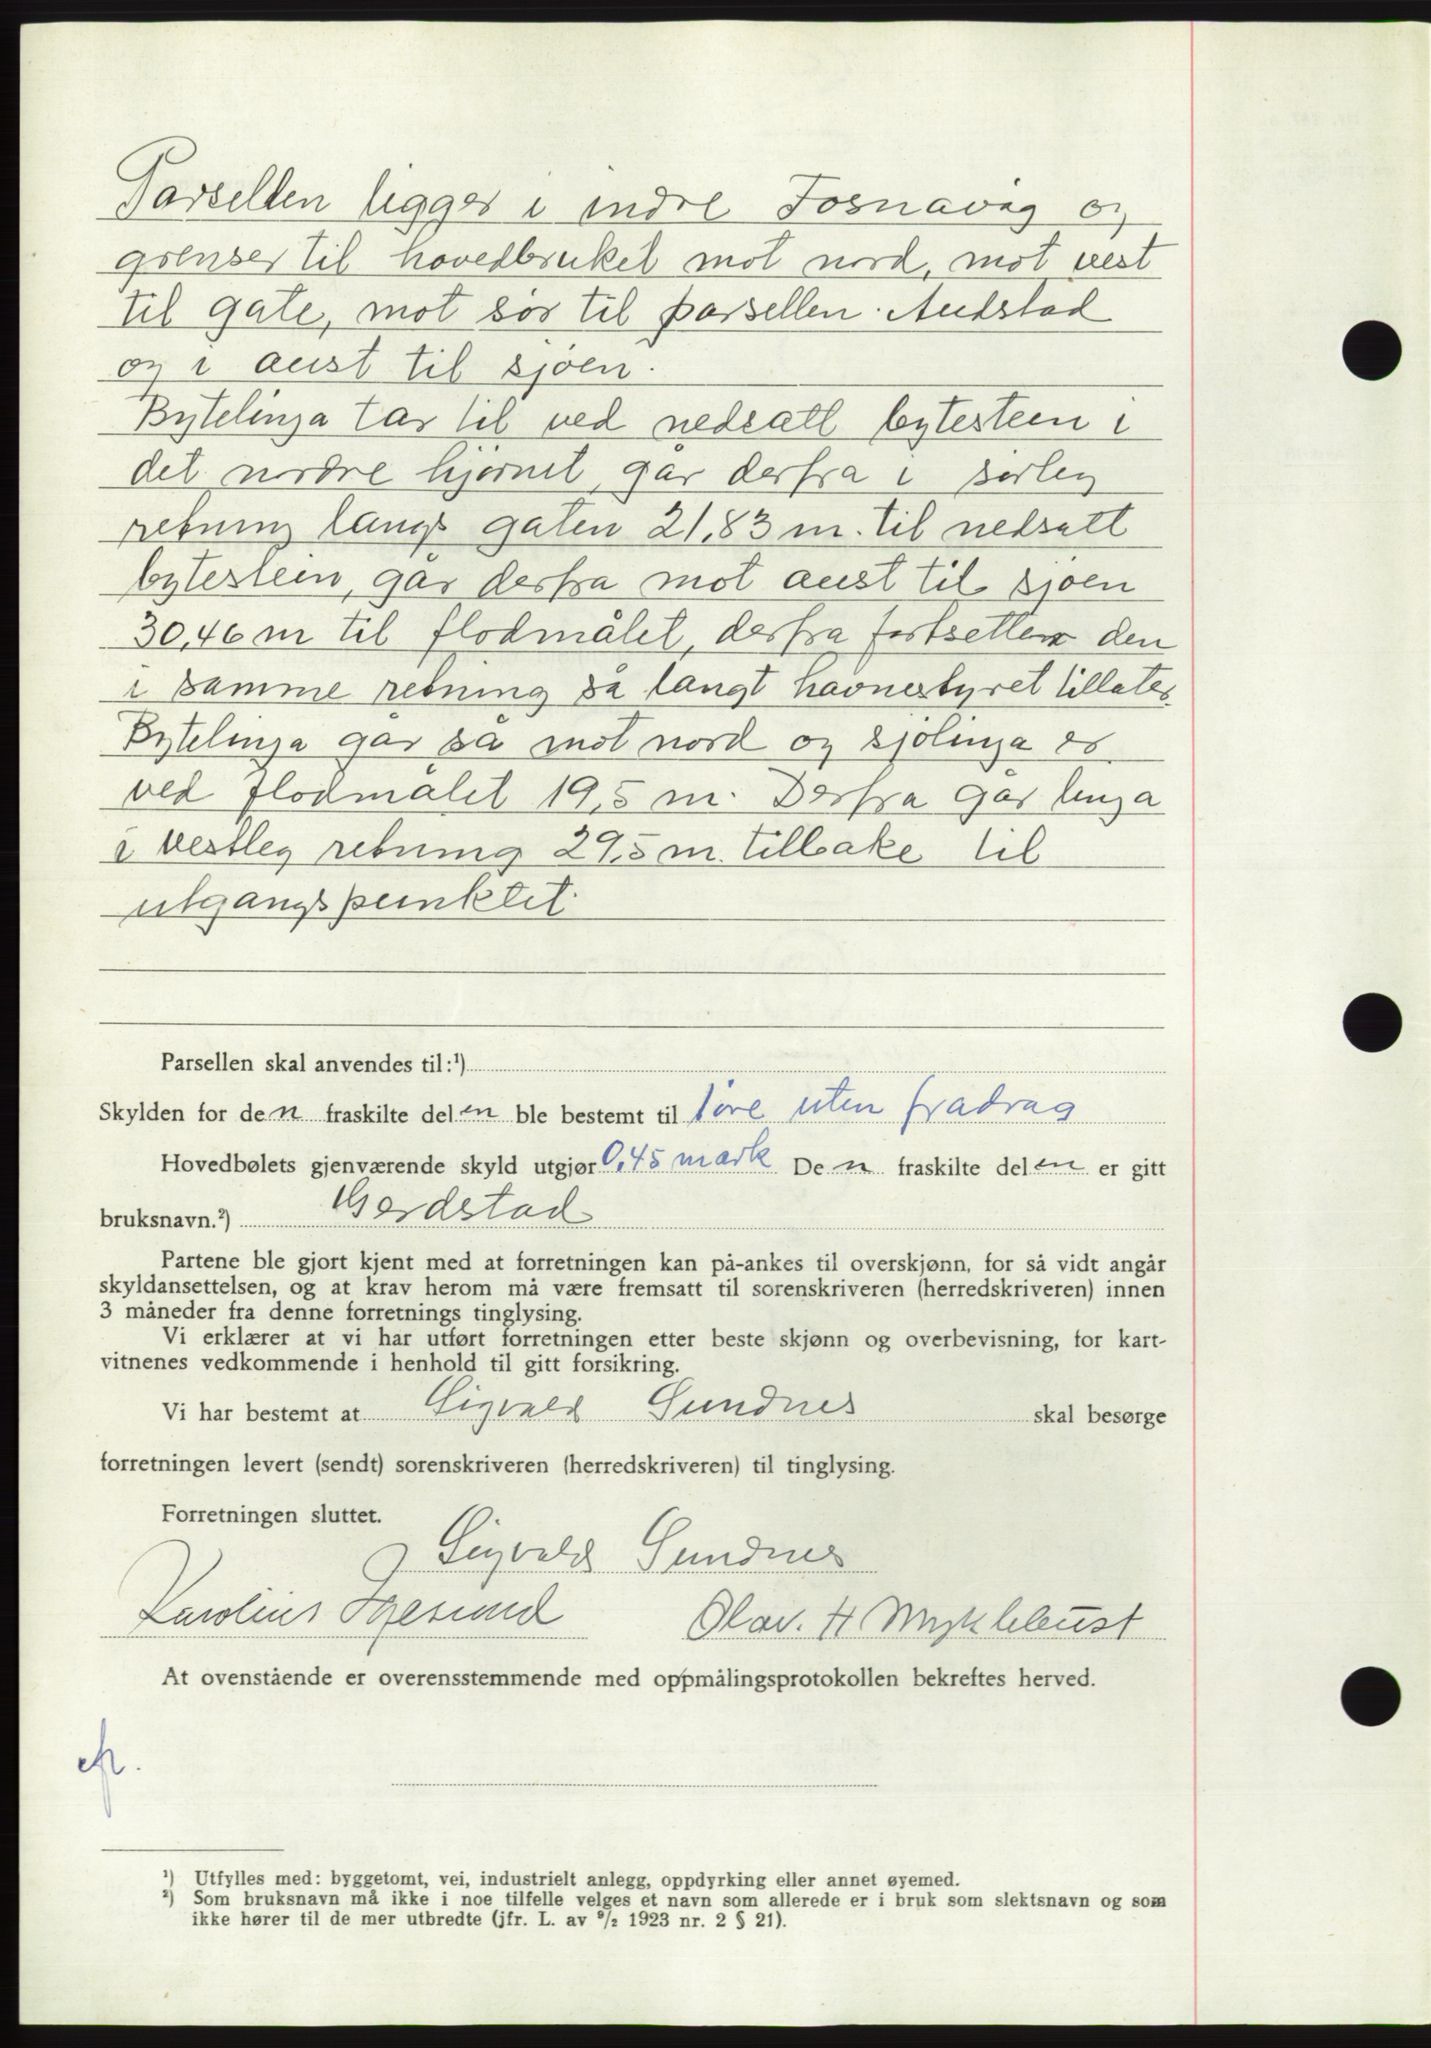 Parsellen ligger i indre Fosnavåg og
grenser til hovedbruket mot nord, mot vest
til gate, mot sør til parsellen Audstad
og i aust til sjøen.
Bytelinja tar til ved nedsatt bytesteen i
det nordre hjørnet, går derfra i sørleg
retning langs gaten 21,83 m. til nedsatt
bytestein, går derfra mot aust til sjøen
30,46 m til flodmålet, derfra fortsetter den
i samme retning så langt havnestyret tillater.
Bytelinja går så mot nord og sjølinja er
ved flodmålet 19,5 m. Derfra går linja
i vestleg retning 29,5 m. tilbake til
utgangspunktet.
Parsellen skal anvendes til:¹)
Skylden for den fraskilte delen ble bestemt til 1 øre uten fradrag
Hovedbølets gjenværende skyld utgjør 0,45 mark Den fraskilte delen er gitt
bruksnavn.²) Gerdstad
Partene ble gjort kjent med at forretningen kan på-ankes til overskjønn, for så vidt angår
skyldansettelsen, og at krav herom må være fremsatt til sorenskriveren (herredskriveren) innen
3 måneder fra denne forretnings tinglysing.
Vi erklærer at vi har utført forretningen etter beste skjønn og overbevisning, for kart-
vitnenes vedkommende i henhold til gitt forsikring.
Vi har bestemt at Sigvald Sundnes skal besørge
forretningen levert (sendt) sorenskriveren (herredskriveren) til tinglysing.
Forretningen sluttet.
Sigvald Sundnes
Karolius Igesund Olav. H Myklebust
At ovenstående er overensstemmende med oppmålingsprotokollen bekreftes herved.
¹) Utfylles med: byggetomt, vei, industrielt anlegg, oppdyrking eller annet øyemed.
²) Som bruksnavn må ikke i noe tilfelle velges et navn som allerede er i bruk som slektsnavn og som
ikke hører til de mer utbredte (jfr. L. av ⁹/₂ 1923 nr. 2 § 21).